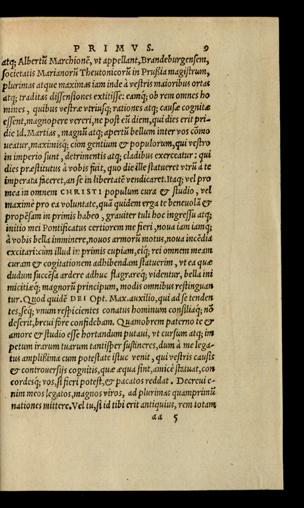 PRIMVS. 9
atq; Albertū Marchionē, vt appellant, Brandeburgensem,
societatis Marianorū Theutonicorū in Prussia magistrum,
plurimas atque maximas iam inde à vestris maioribus ortas
atq; traditas dissensiones extitisse: eamq́; ob rem omnes ho
mines, quibus vestræ vtriusq; rationes atq; causæ cognitæ
essent, magnopere vereri, ne post eū diem, qui dies erit pri-
die Id. Martias, magnū atq; apertū bellum inter vos cōmo
ueatur, maximisq́; cùm gentium & populorum, qui vestro
in imperio sunt, detrimentis atq; cladibus exerceatur: qui
dies præstitutus à vobis fuit, quo die ille statueret vtrū à te
imperata faceret, an se in libertatē vendicaret. Itaq; vel pro
mea in omnem CHRISTI populum cura & studio, vel
maximè pro ea voluntate, quā quidem erga te beneuolā &
propēsam in primis habeo, grauiter tuli hoc ingressu atq;
initio mei Pontificatus certiorem me fieri, noua iam iamq́;
à vobis bella imminere, nouos armorū motus, noua incēdia
excitari: cùm illud in primis cupiam, eiq́; rei omnem meam
curam & cogitationem adhibendam statuerim, vt ea quæ
dudum succēsa ardere adhuc flagrareq́; videntur, bella ini
micitiæq́; magnorū principum, modis omnibus restinguan
tur. Quod quidē DEI Opt. Max. auxilio, qui ad se tenden
tes, seq́; vnum respicientes conatus hominum consiliaq́; nō
deserit, breui fore confidebam. Quamobrem paterno te &
amore & studio esse hortandum putaui, vt cursum atq; im
petum irarum tuarum tantisper sustineres, dum à me lega-
tus amplissima cum potestate istuc venit, qui vestris causis
& controuersijs cognitis, quæ æqua sint, amicè statuat, con
cordesq́; vos, si fieri potest, & pacatos reddat. Decreui e-
nim meos legatos, magnos viros, ad plurimas quamprimū
nationes mittere. Vel tu, si id tibi erit antiquius, rem totam
aa 5